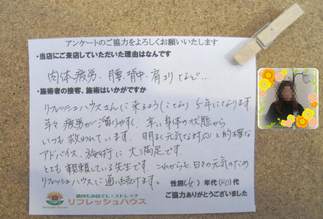 アンケートのご協力をよろしくお願いいたします
・当店にご来店していただいた理由はなんですか
肉体疲労、腰、背中、肩コリなど…
・施術者の接客、施術はいかがですか
リフレッシュハウスさんに来るように
年になります
疲労が溜りやすく、辛い身体の状態から
いつも救われています。明るく元気な対応と的確な
アドバイス、施術に大満足です。
とても信頼している先生です。これからも、日々の元気のため
リフレッシュハウスに通い続けます。
性別(女) 年代( )代
ご協力ありがとうございました
リフレッシュハウス